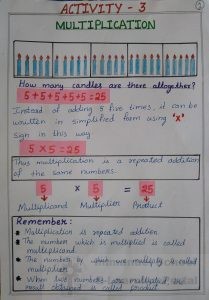 ACTIVITY - 3
MULTIPLICATION
How many candles are there alltogether?
5+5+5+5+5=25
Instead of adding 5 five times, it can be
written in simplified form using 'x'
sign in this way
5 x 5 = 25
Thus multiplication is a repeated addition
of the same numbers.
5 x 5 = 25
Multiplicand Multiplier Product
Remember:
Multiplication is repeated addition
The number which is multiplied is called
multiplicand.
The number by which we multiply is called
multiplier
When two numbers are multiplied the
result obtained is called product